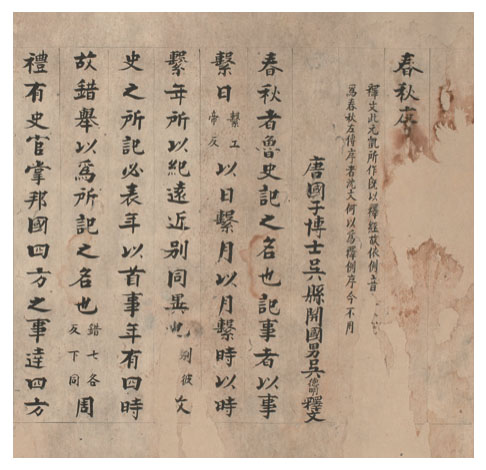 春秋序
釋文此元凱所作既以釋經故依例音
爲春秋左傳序者沈文何以爲釋例序今不用
唐國子博士吳縣開國男吳德明釋文
春秋者魯史記之名也記事者以事
繫日繫工帝反以日繫月以月繫時以時
繫年所以紀遠近别同異也别彼
史之所記必表年以首事年有四時
故錯舉以爲所記之名也錯七各反下同周
禮有史官掌邦國四方之事達四方